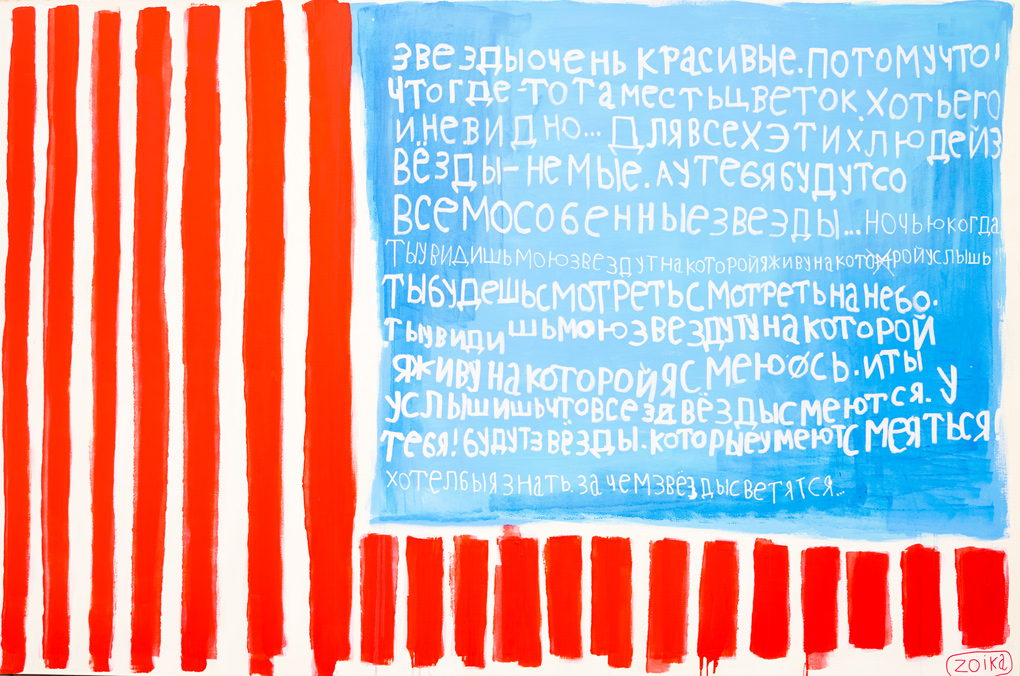 звездыоченькрасивые.потомучто'
чтогде-тотаместьцветок.хотьего
иневидно... Длявсехэтихлюдейз
вёзды-немые.аутебябудутсо
всемособенныезвезды...ночьюкогда
тыувидишьмоюзвездутнакоторойяживунакоторойуслышь
тыбудешьсмотретьсмотретьнанебо.
тыувидишьмоюзвездутунакоторой
яживунакоторойясмеюøсь.иты
услышишьчтовсеззвёздысмеются.у
тебя!будутзвёзды.которыеумеютсмеяться!
хотелбыязнать.зачемзвёздысветятся...
zoika